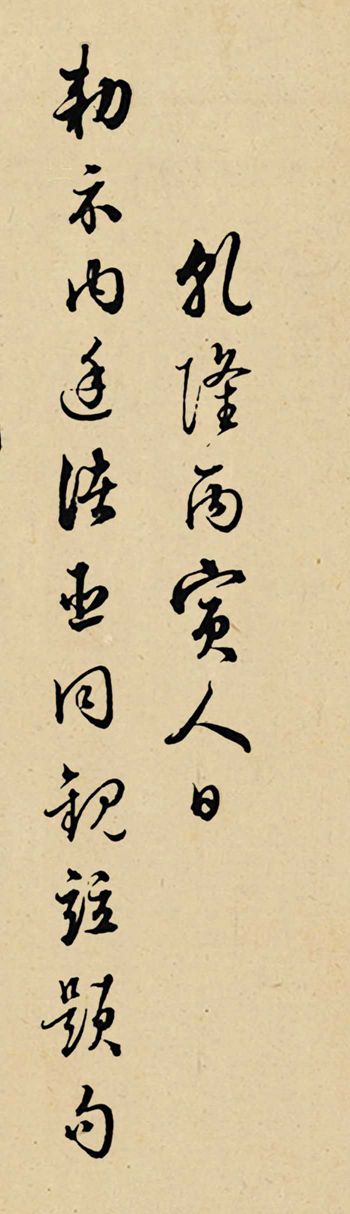 乾隆丙寅人日
勅示内廷諸臣同觀註題句